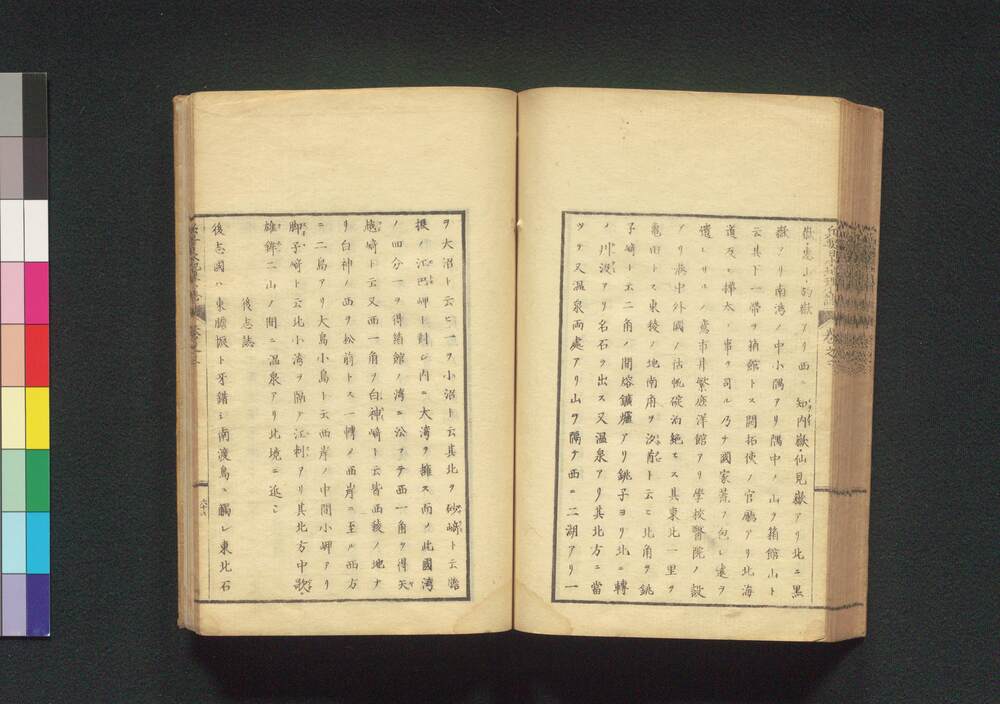 嶽アリ西ニ知内嶽仙見嶽アリ北ニ黒
嶽アリ南湾ノ中小隅アリ隅中ノ山ヲ箱館山ト
云其下一帶ヲ箱館トス開拓使ノ官廳アリ北海
道及ヒ樺太ノ事ヲ司ル乃チ國家荒ヲ包シ遠ヲ
遺レサルノ意市井繁庶洋館アリ學校醫院ノ設
アリ海中外國ノ估帆碇泊絶エス其東北一里ヲ
亀田トス東稜ノ地南府ヲ汐首ト云ヒ北角ヲ銚
子﨑ト云二角ノ間熔鑛爐アリ銚子ヨリ北ニ轉
ノ川汲アリ名石ヲ出ス又温泉アリ其北方ニ當
ツテ又温泉兩處アリ山ヲ隔テ西ニ二湖アリ一
ヲ大沼ト云ヒ一ヲ小沼ト云其北ヲ砂﨑ト云膽
振ノ江巴岬ト對シ内ニ大湾ヲ擁ス而ノ此國湾
ノ四分一ヲ得箱館ノ湾ニ沿フテ西一角ヲ得天
越﨑ト云又西一角ヲ白神﨑ト云皆西稜ノ地ナ
リ白神ノ西ヲ松前トス一轉ノ西岸ニ至ル西方
ニ二島アリ大島小島ト云西岸ノ中間小岬アリ
脚子﨑ト云北小湾ヲ隔テ江刺アリ其北方中歌
雄鉾二山ノ間ニ温泉アリ北境ニ近シ
後志誌
後志國ハ東膽振ト牙錯シ南渡島ニ觸レ東北石
六十六